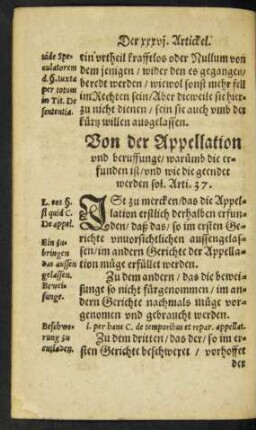 Der xxxvj. Artickel.
vide Spe-
culatorem
d. §. iuxta
per totum
in Tit. De
sententia.
ein vrtheil krafftlos oder Nullum von
dem jenigen / wider den es gegangen /
beredt werden / wiewol sonst mehr fell
im Rechten sein / Aber dieweile sie hier-
zu nicht dienen / sein sie auch vmb der
kürtz willen ausgelassen.
Von der Appellation
vnd beruffunge / warümb die er-
funden ist / vnd wie die geendet
werden sol. Arti. 37.
L. eos §.
si quid C.
De appel.
Ein zu-
bringen
das aussen
gelassen.
Bewei-
sunge.
ISt zu mercken / das die Appel-
lation erstlich derhalben erfun-
den / daß das / so im ersten Ge-
richte vnuorsichtlichen aussengelas-
sen / im andern Gerichte der Appella-
tion müge erfüllet werden.
Zu dem andern / das die bewei-
sunge so nicht fürgenommen / im an-
dern Gerichte nachmals müge vor-
genomen vnd gebraucht werden.
l. per hanc C. de temporibus et repar. appellat.
Beschwe-
rung zu
entladen.
Zu dem dritten / das der / so im er-
sten Gerichte beschweret / vorhoffet
der